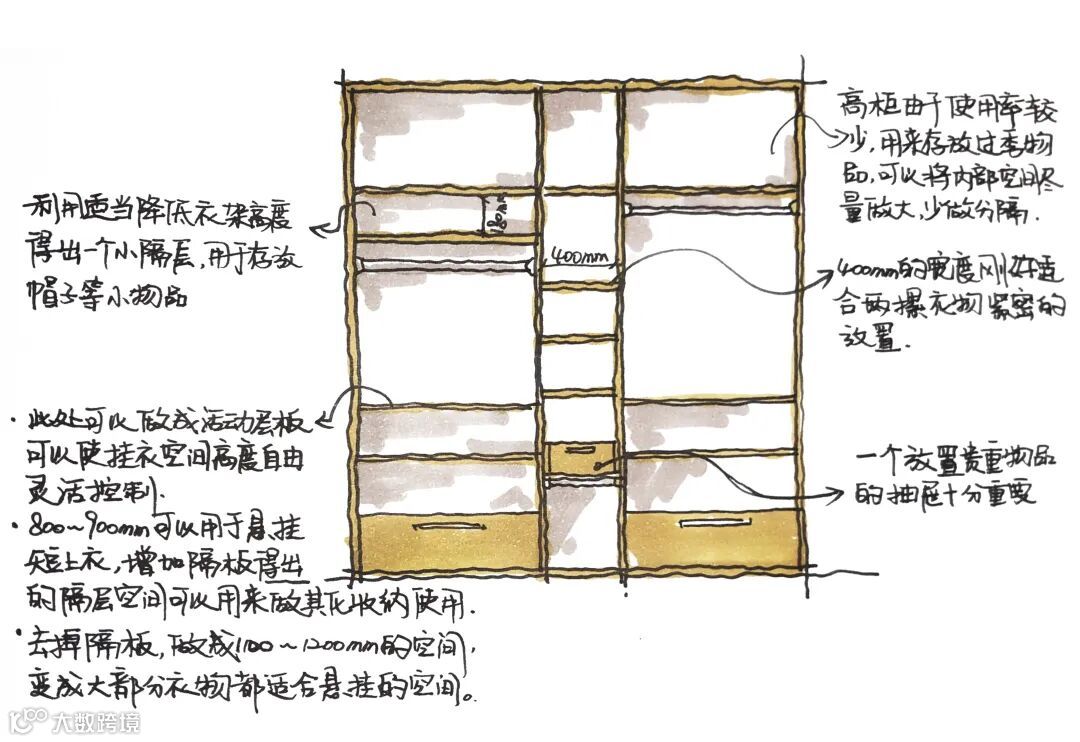 利用适当降低衣架高度
得出一个小隔层,用于存放
帽子等小物品
· 此处可以做成活动层板
可以使挂衣空间高度自由
灵活控制.
· 800~900mm可以用于悬挂
短上衣,增加隔板得出
的隔层空间可以用来做其他收纳使用.
· 去掉隔板,做成1100~1200mm的空间,
变成大部分衣物都适合悬挂的空间。
180mm
400mm
高柜由于使用率较
少,用来存放过季物
品,可以将内部空间尽
量放大,少做分隔.
400mm的宽度刚好适
合两摞衣物紧密的
放置.
一个放置贵重物品
的抽屉十分重要
大数跨境